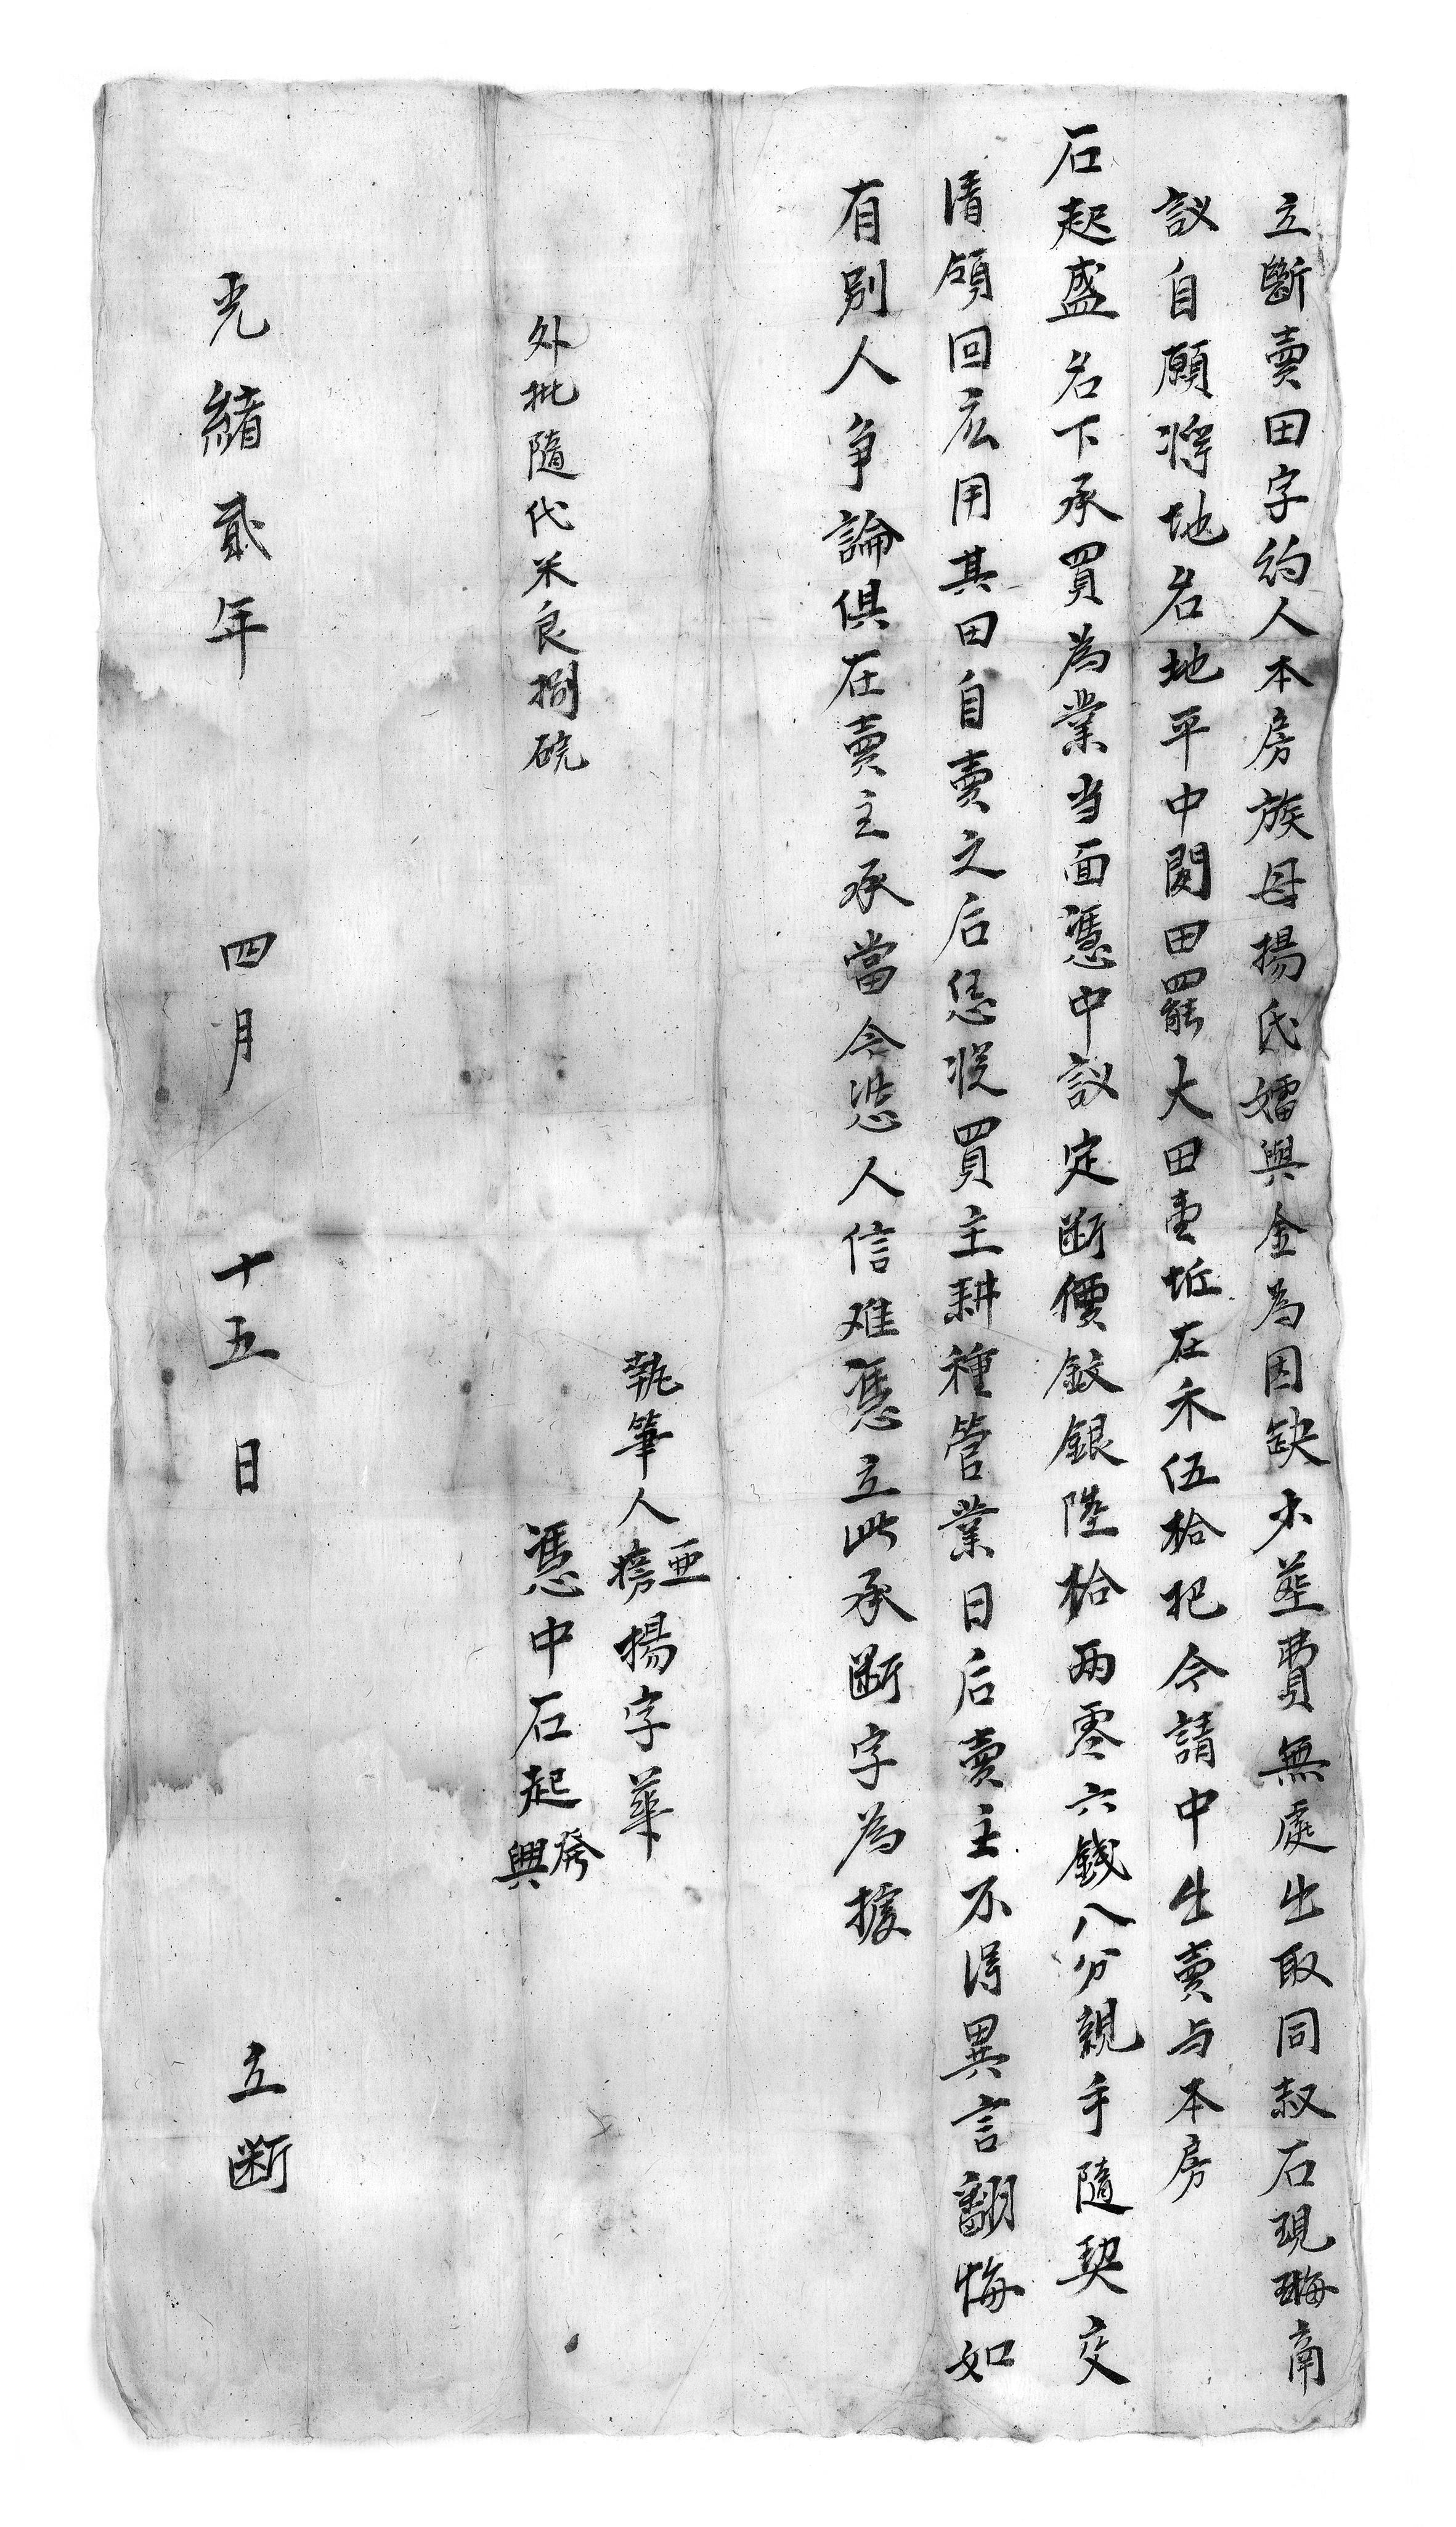 立斷賣田字約人本房族母揚氏嬬與金為因缺少塟費無處出取同叔石現𤦌商
議自願將地名地平中閔田罷大田壹坵在禾伍拾把今請中出賣与本房
石起盛名下承買為業当面憑中議定断價紋銀陸拾両零六錢八分親手隨契交
清領回応用其田自賣之后恁從買主耕種管業日后賣主不得異言翻悔如
有别人争論俱在賣主承當今恐人信难憑立此承断字為據
執筆人亜㾮揚字華
憑中石起發興
外批隨代米良捌碗
光緒貳年四月十五日立断